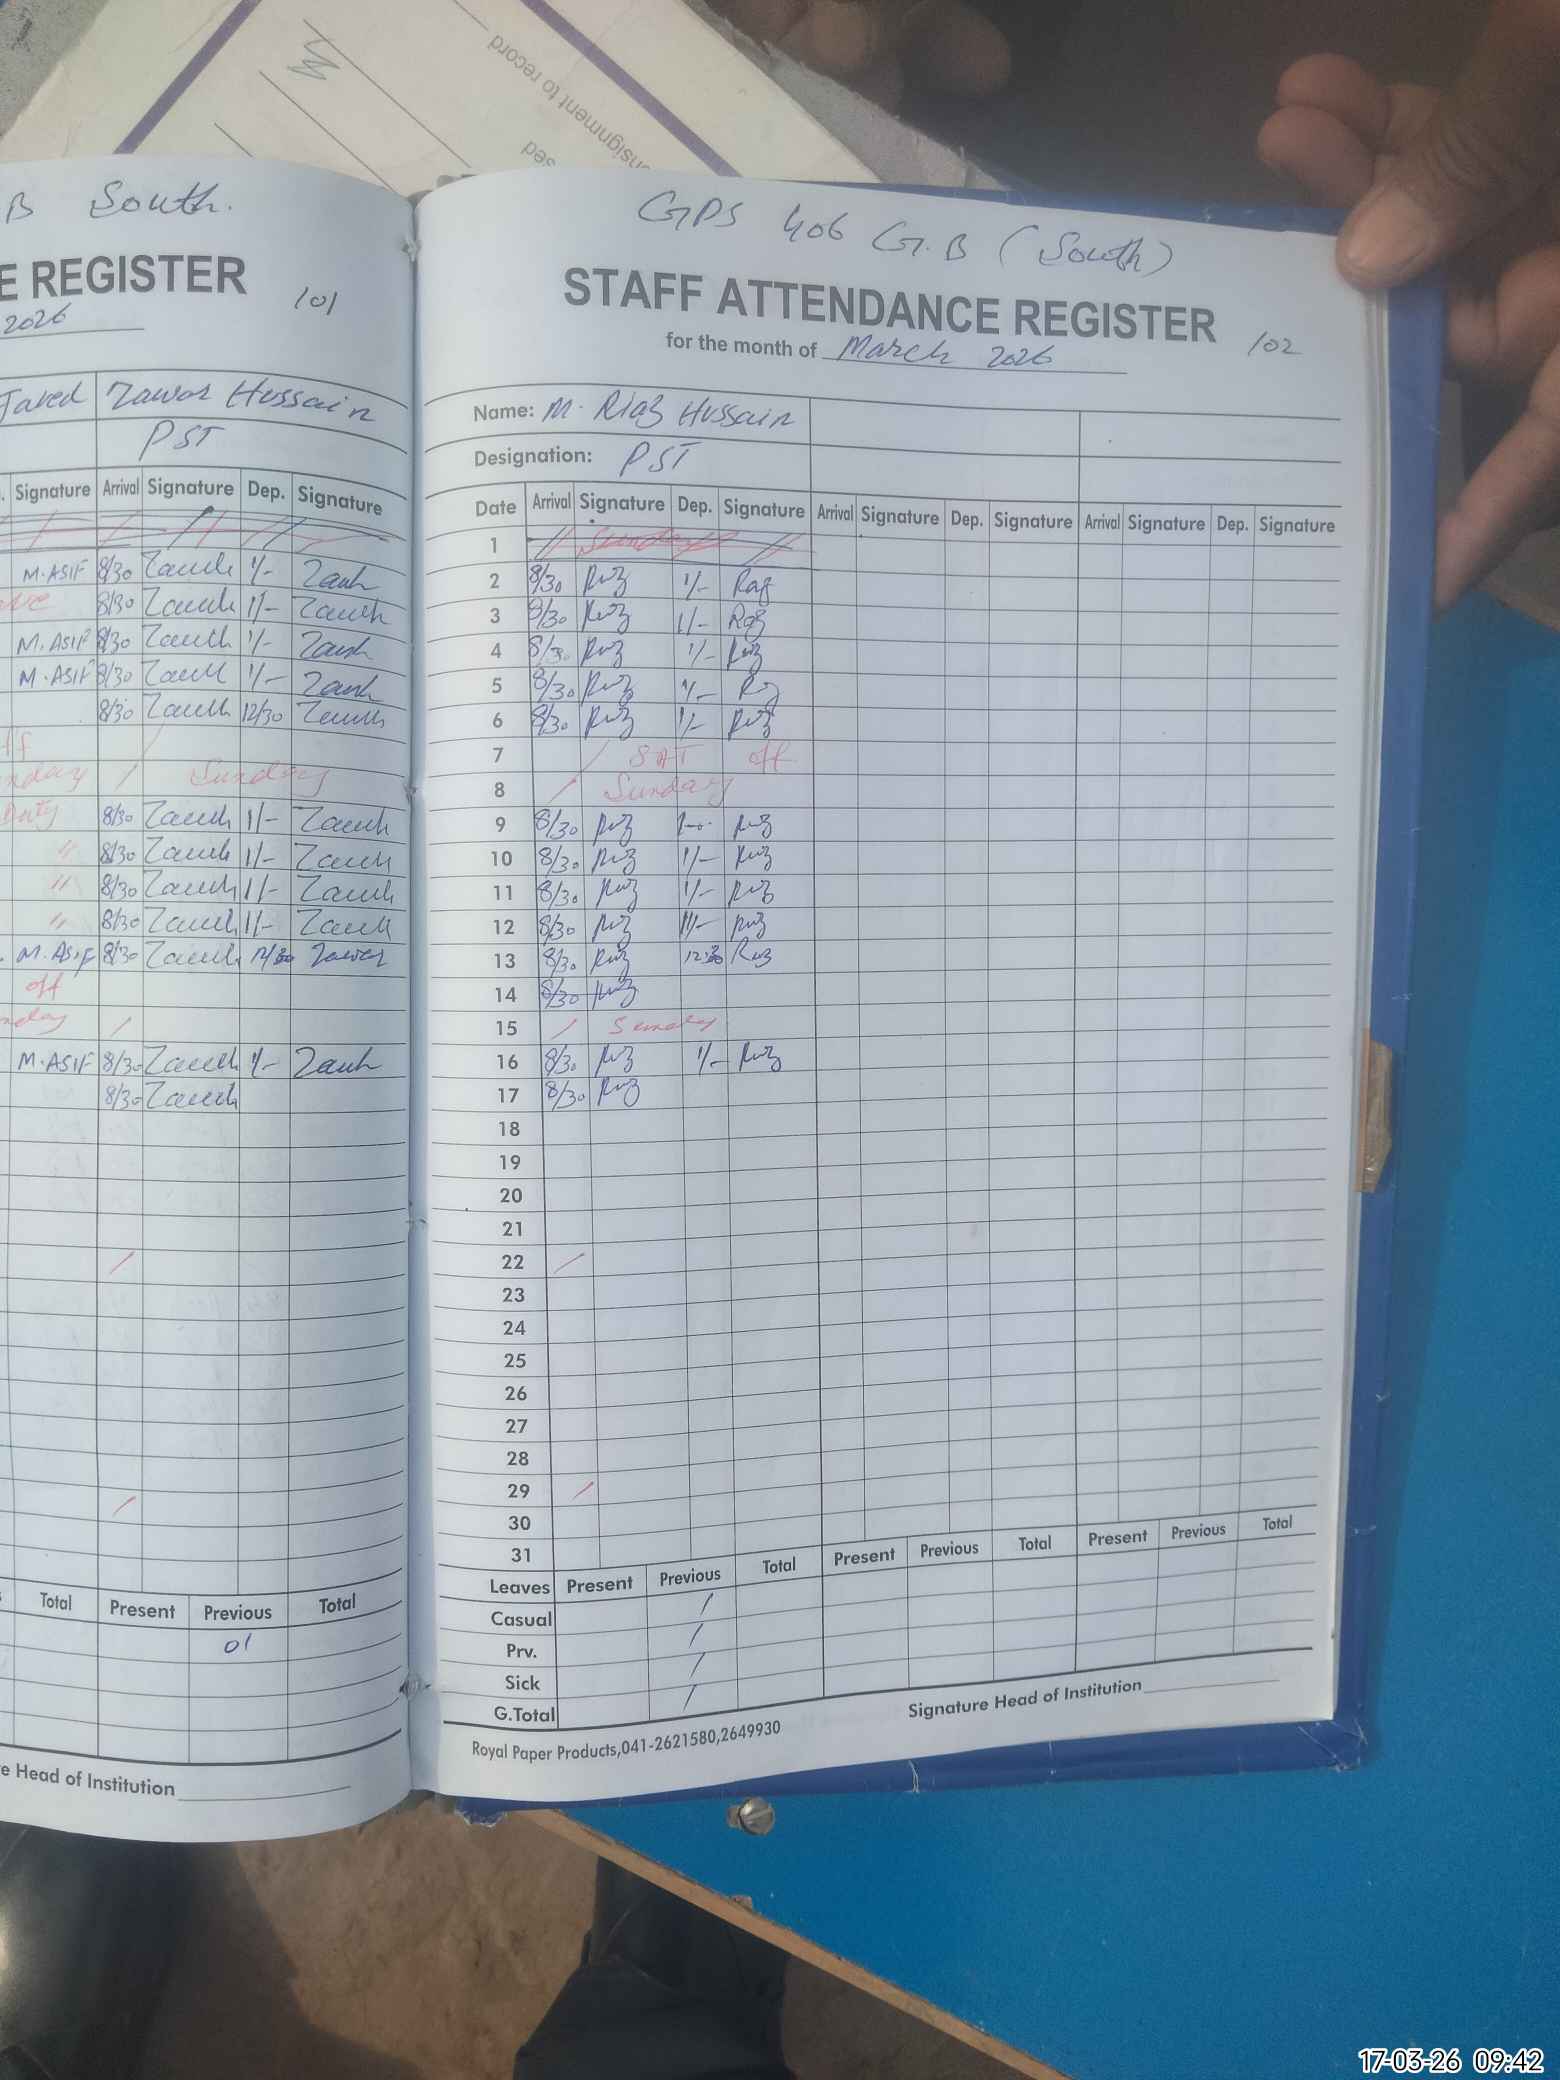 onsignment to record
sed
B South.
E REGISTER 101
2026
Javed Zawar Hussain
PST
Signature Arrival Signature Dep. Signature
M.ASIF 8/30 1/-
8/30 1/-
M.ASIF 8/30 1/-
M.ASIF 8/30 1/-
8/30 12/30
ff
nday Sunday
Duty 8/30 1/-
" 8/30 1/-
" 8/30 1/-
" 8/30 1/-
M.ASIF 8/30 12/30 Zawar
off
nday
M.ASIF 8/30 1/-
8/30
Total Present Previous Total
01
e Head of Institution
GPS 406 G.B (South)
STAFF ATTENDANCE REGISTER 102
for the month of March 2026
Name: M. Riaz Hussain
Designation: PST
Date Arrival Signature Dep. Signature Arrival Signature Dep. Signature Arrival Signature Dep. Signature
1 Sunday
2 8/30 Riaz 1/- Riaz
3 8/30 Riaz 1/- Riaz
4 8/30 Riaz 1/- Riaz
5 8/30 Riaz 1/- Riaz
6 8/30 Riaz 1/- Riaz
7 SAT off
8 Sunday
9 8/30 Riaz Riaz
10 8/30 Riaz 1/- Riaz
11 8/30 Riaz 1/- Riaz
12 8/30 Riaz 1/- Riaz
13 8/30 Riaz 12:30 Riaz
14 8/30 Riaz
15 Sunday
16 8/30 Riaz 1/- Riaz
17 8/30 Riaz
18
19
20
21
22
23
24
25
26
27
28
29
30
31
Leaves Present Previous Total Present Previous Total Present Previous Total
Casual
Prv.
Sick
G.Total
Signature Head of Institution
Royal Paper Products,041-2621580,2649930
17-03-26 09:42